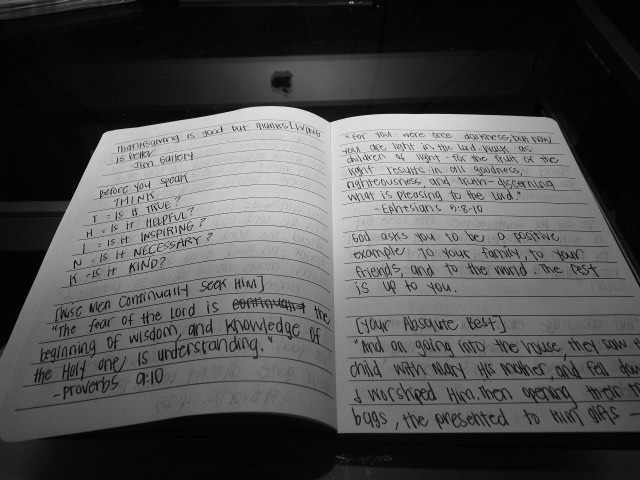 Thanksgiving is good but thanksLiving
is better
- Jim Gallery
Before You Speak
THINK
T = Is it TRUE?
H = Is it HELPFUL?
I = Is it INSPIRING?
N = Is it NECESSARY?
K = Is it KIND?
[Wise men Continually Seek HIM]
"The fear of the Lord is the
beginning of wisdom, and knowledge of
the Holy one, is understanding."
- Proverbs 9:10
"For you were once darkness, but now
you are light in the Lord. Walk as
children of light - for the fruit of the
light results in all goodness,
righteousness, and truth - discerning
what is pleasing to the Lord."
- Ephesians 5:8-10
God asks you to be a positive
example to your family, to your
friends, and to the world. The rest
is up to you.
[Your Absolute Best]
"And on going into the house, they saw th
child with Mary His mother, and fell down
& worshiped Him. Then opening their
bags, the presented to Him gifts -